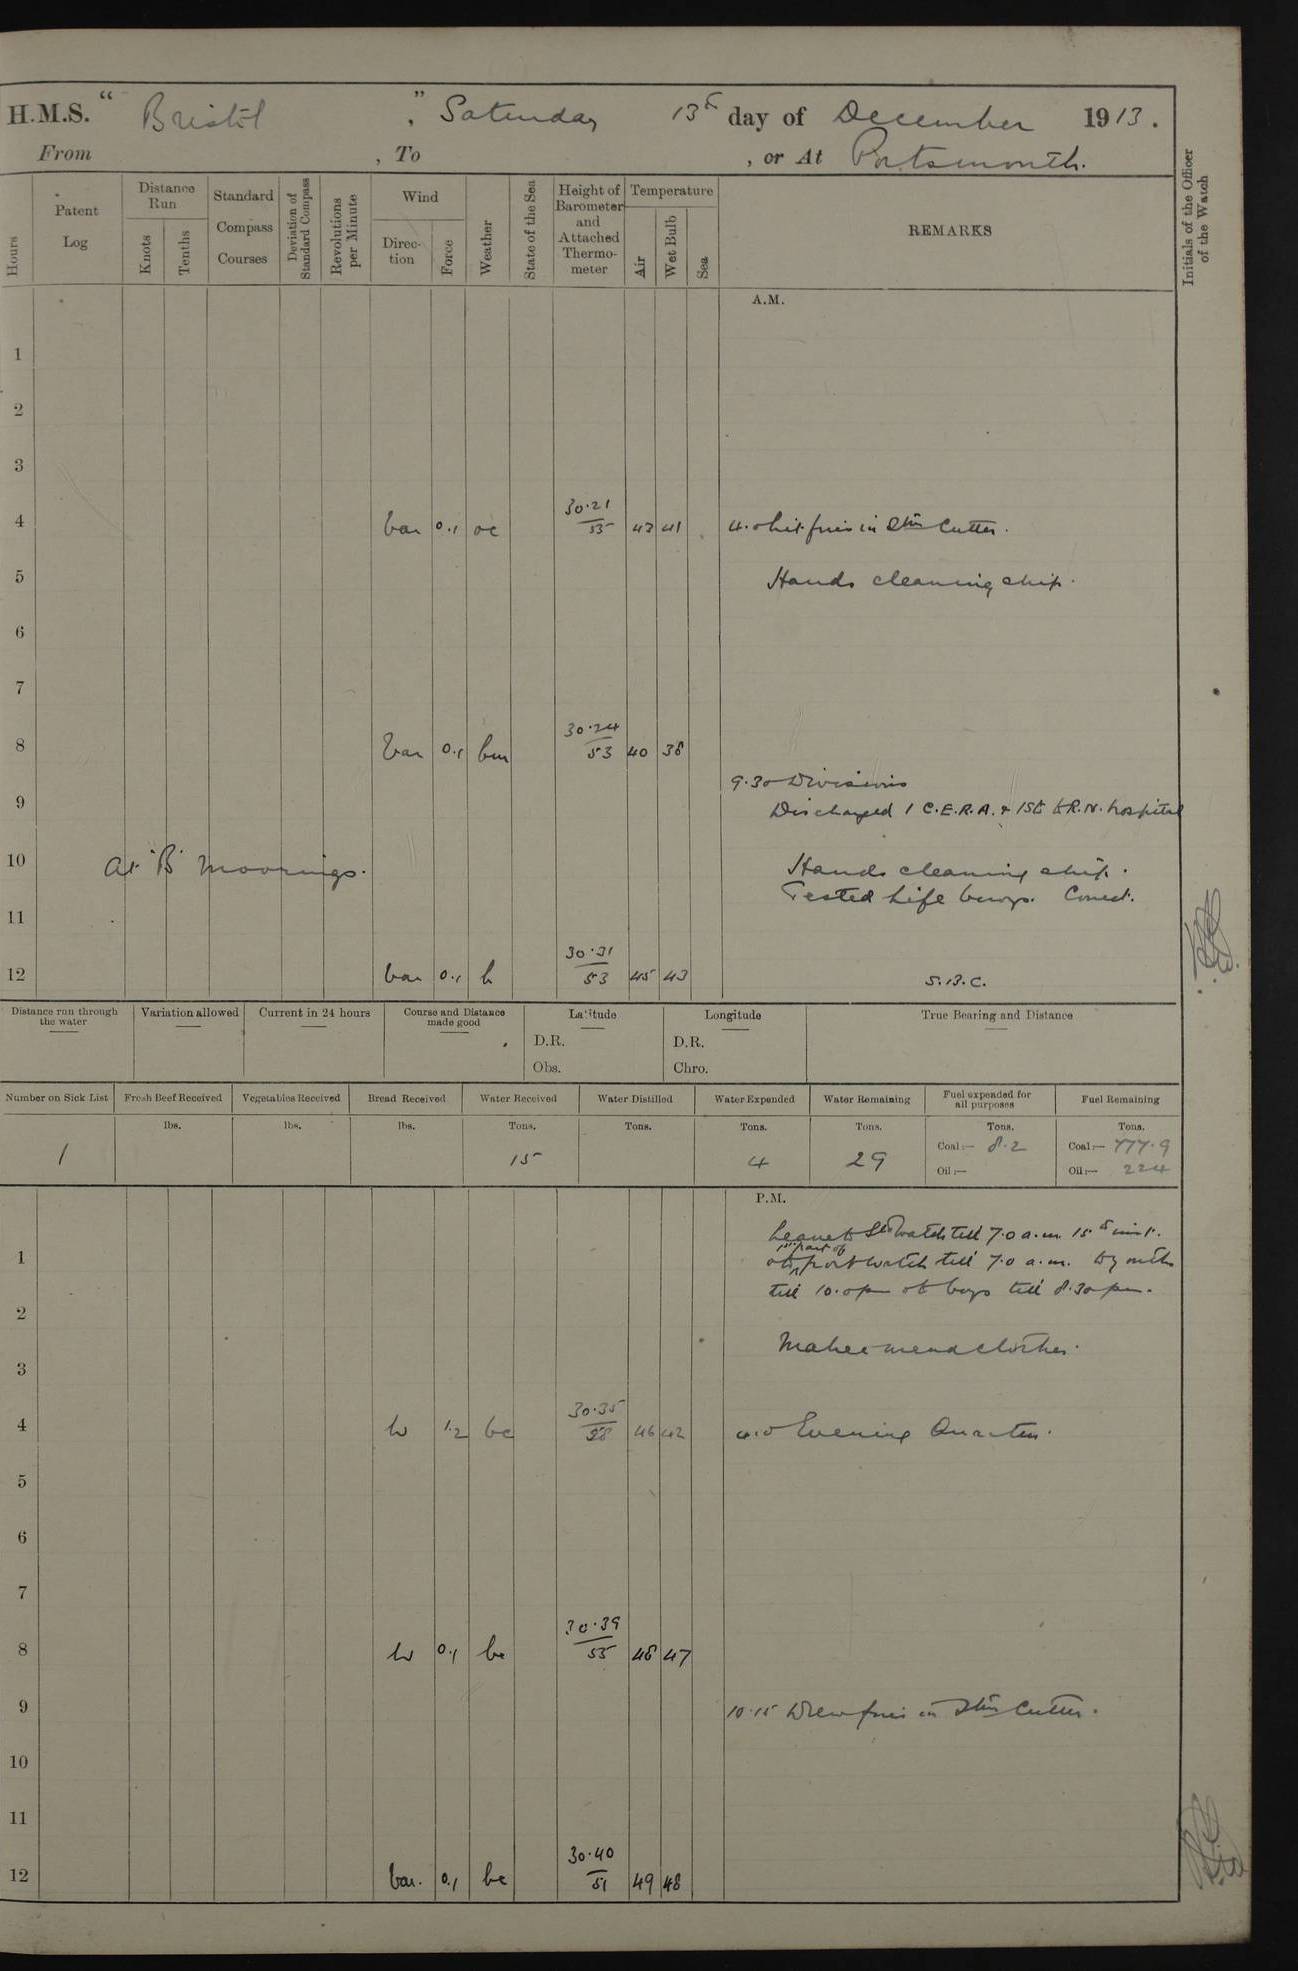 H.M.S. " Bristol ", Saturday 13th day of December 1913.
From , To , or At Portsmouth.
Hours
Patent Log
Distance Run
Knots
Tenths
Standard Compass Courses
Deviation of Standard Compass
Revolutions per Minute
Wind
Direction
Force
Weather
State of the Sea
Height of Barometer and Attached Thermometer
Temperature
Air
Wet Bulb
Sea
REMARKS
Initials of the Officer of the Watch
A.M.
1
2
3
4 var 0.1 oc 30.21/55 43 41 4.0 Lit fires in Stm Cutter.
5 Hands cleaning ship.
6
7
8 var 0.1 bm 30.24/53 40 38
9.30 Divisions
9 Discharged 1 C.E.R.A. & 1 St to R.N. hospital
10 At 'B' moorings. Hands cleaning ship.
Tested Life buoys. Correct.
11
12 var 0.1 b 30.31/53 45 43 S.B.C.
Distance run through the water
Variation allowed
Current in 24 hours
Course and Distance made good
Latitude
D.R.
Obs.
Longitude
D.R.
Chro.
True Bearing and Distance
Number on Sick List
Fresh Beef Received
Vegetables Received
Bread Received
Water Received
Water Distilled
Water Expended
Water Remaining
Fuel expended for all purposes
Fuel Remaining
lbs. lbs. lbs. Tons. Tons. Tons. Tons. Tons. Tons.
1 15 4 29 Coal:— 8.2 Coal:— 777.9
Oil:— Oil:— 224
P.M.
Leave to Watch till 7.0 a.m. 15th inst.
1st part of
1 port watch till 7.0 a.m.
till 10.0 pm boys till 8.30 pm.
2
Make & mend clothes.
3
4 W 1.2 bc 30.35 46 42 4.0 Evening Quarters.
5
6
7
8 W 0.1 bc 30.39/55 48 47
9 10.15 Drew fires in Stm Cutter.
10
11
12 var. 0.1 bc 30.40/51 49 48